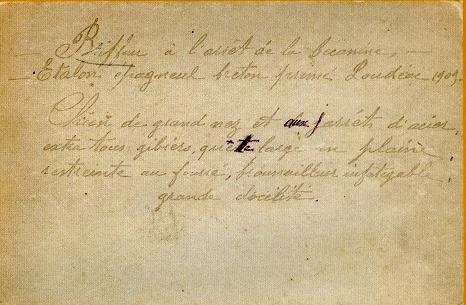 Riffleur à l'arrêt de la bécassine, —
— Etalon épagneul breton primé Loudéac 1909 —
Chien de grand nez et aux jarrêt d'acier,
extra tous gibiers, quête large en plaine
restreinte au fourré, broussailleur infatigable,
grande docilité.